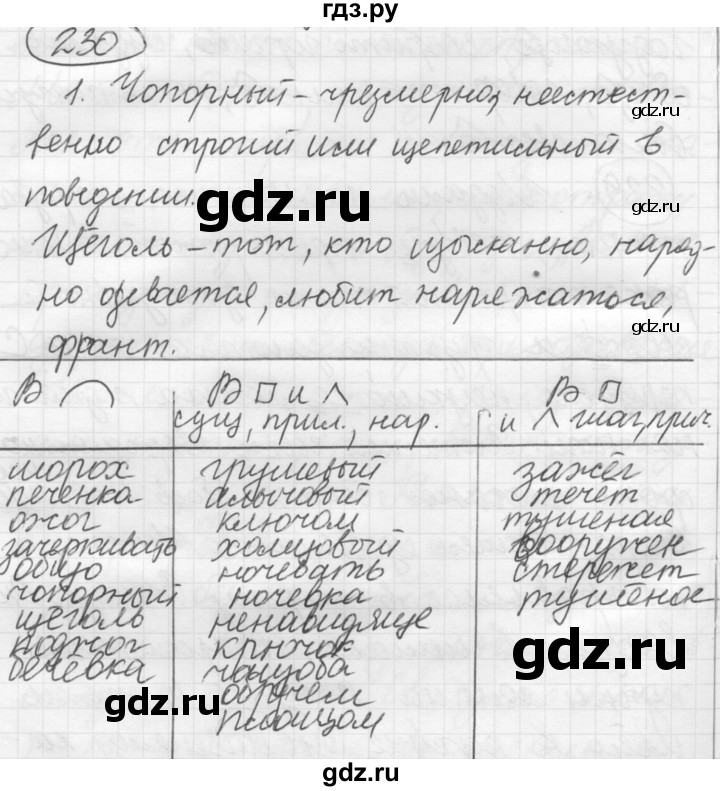 гдз.ру
230
1. Чопорный – чрезмерно, неестест-
венно строгий или щепетильный в
поведении.
Щёголь – тот, кто изысканно, наряд-
но одевается, любит наряжаться,
франт.
В В и В
сущ, прил., нар. и глаг, прич.
шорох грушевый зажёг
печёнка алычовый течёт
ожог ключом тушёная
зачёркивать холщовый вооружён
общо ночевать стережёт
чопорный ночёвка тушёное
щёголь ненавидяще
поджог ключок
бечёвка чащоба
обручем
плющом
gdz.ru
gdz.ru
gdz.ru
gdz.ru
gdz.ru
gdz.ru
gdz.ru
gdz.ru